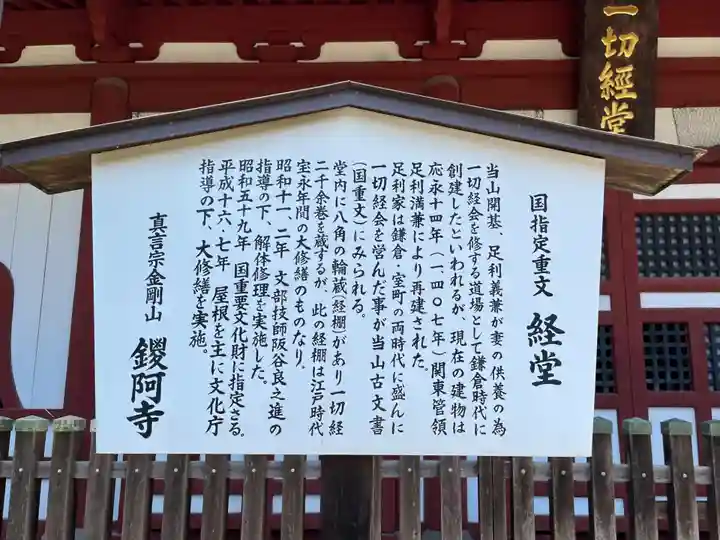 一切經堂
国指定重文 経堂
当山開基、足利義兼が妻の供養の為
一切経会を修する道場として鎌倉時代に
創建したといわれるが 現在の建物は
応永十四年(一、四〇七年)関東管領
足利満兼により再建された。
足利家は鎌倉・室町の両時代に盛んに
一切経会を営んだ事が当山古文書
(国重文)にみられる。
堂内に八角の輪蔵(経棚)があり一切経
二千余巻を蔵するが、此の経棚は江戸時代
宝永年間の大修繕のものなり。
昭和十一、二年 文部技師阪谷良之進の
指導の下、解体修理を実施した。
昭和五十九年 国重要文化財に指定さる。
平成十六、七年 屋根を主に文化庁
指導の下、大修繕を実施。
真言宗金剛山 鑁阿寺